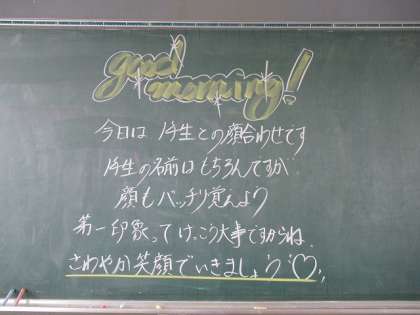 good
morning!
今日は 1年生との顔合わせです
1年生の名前はもちろんですが
顔もバッチリ覚えよう
第一印象ってけっこう大事ですからね.
さわやか笑顔でいきましょう♡